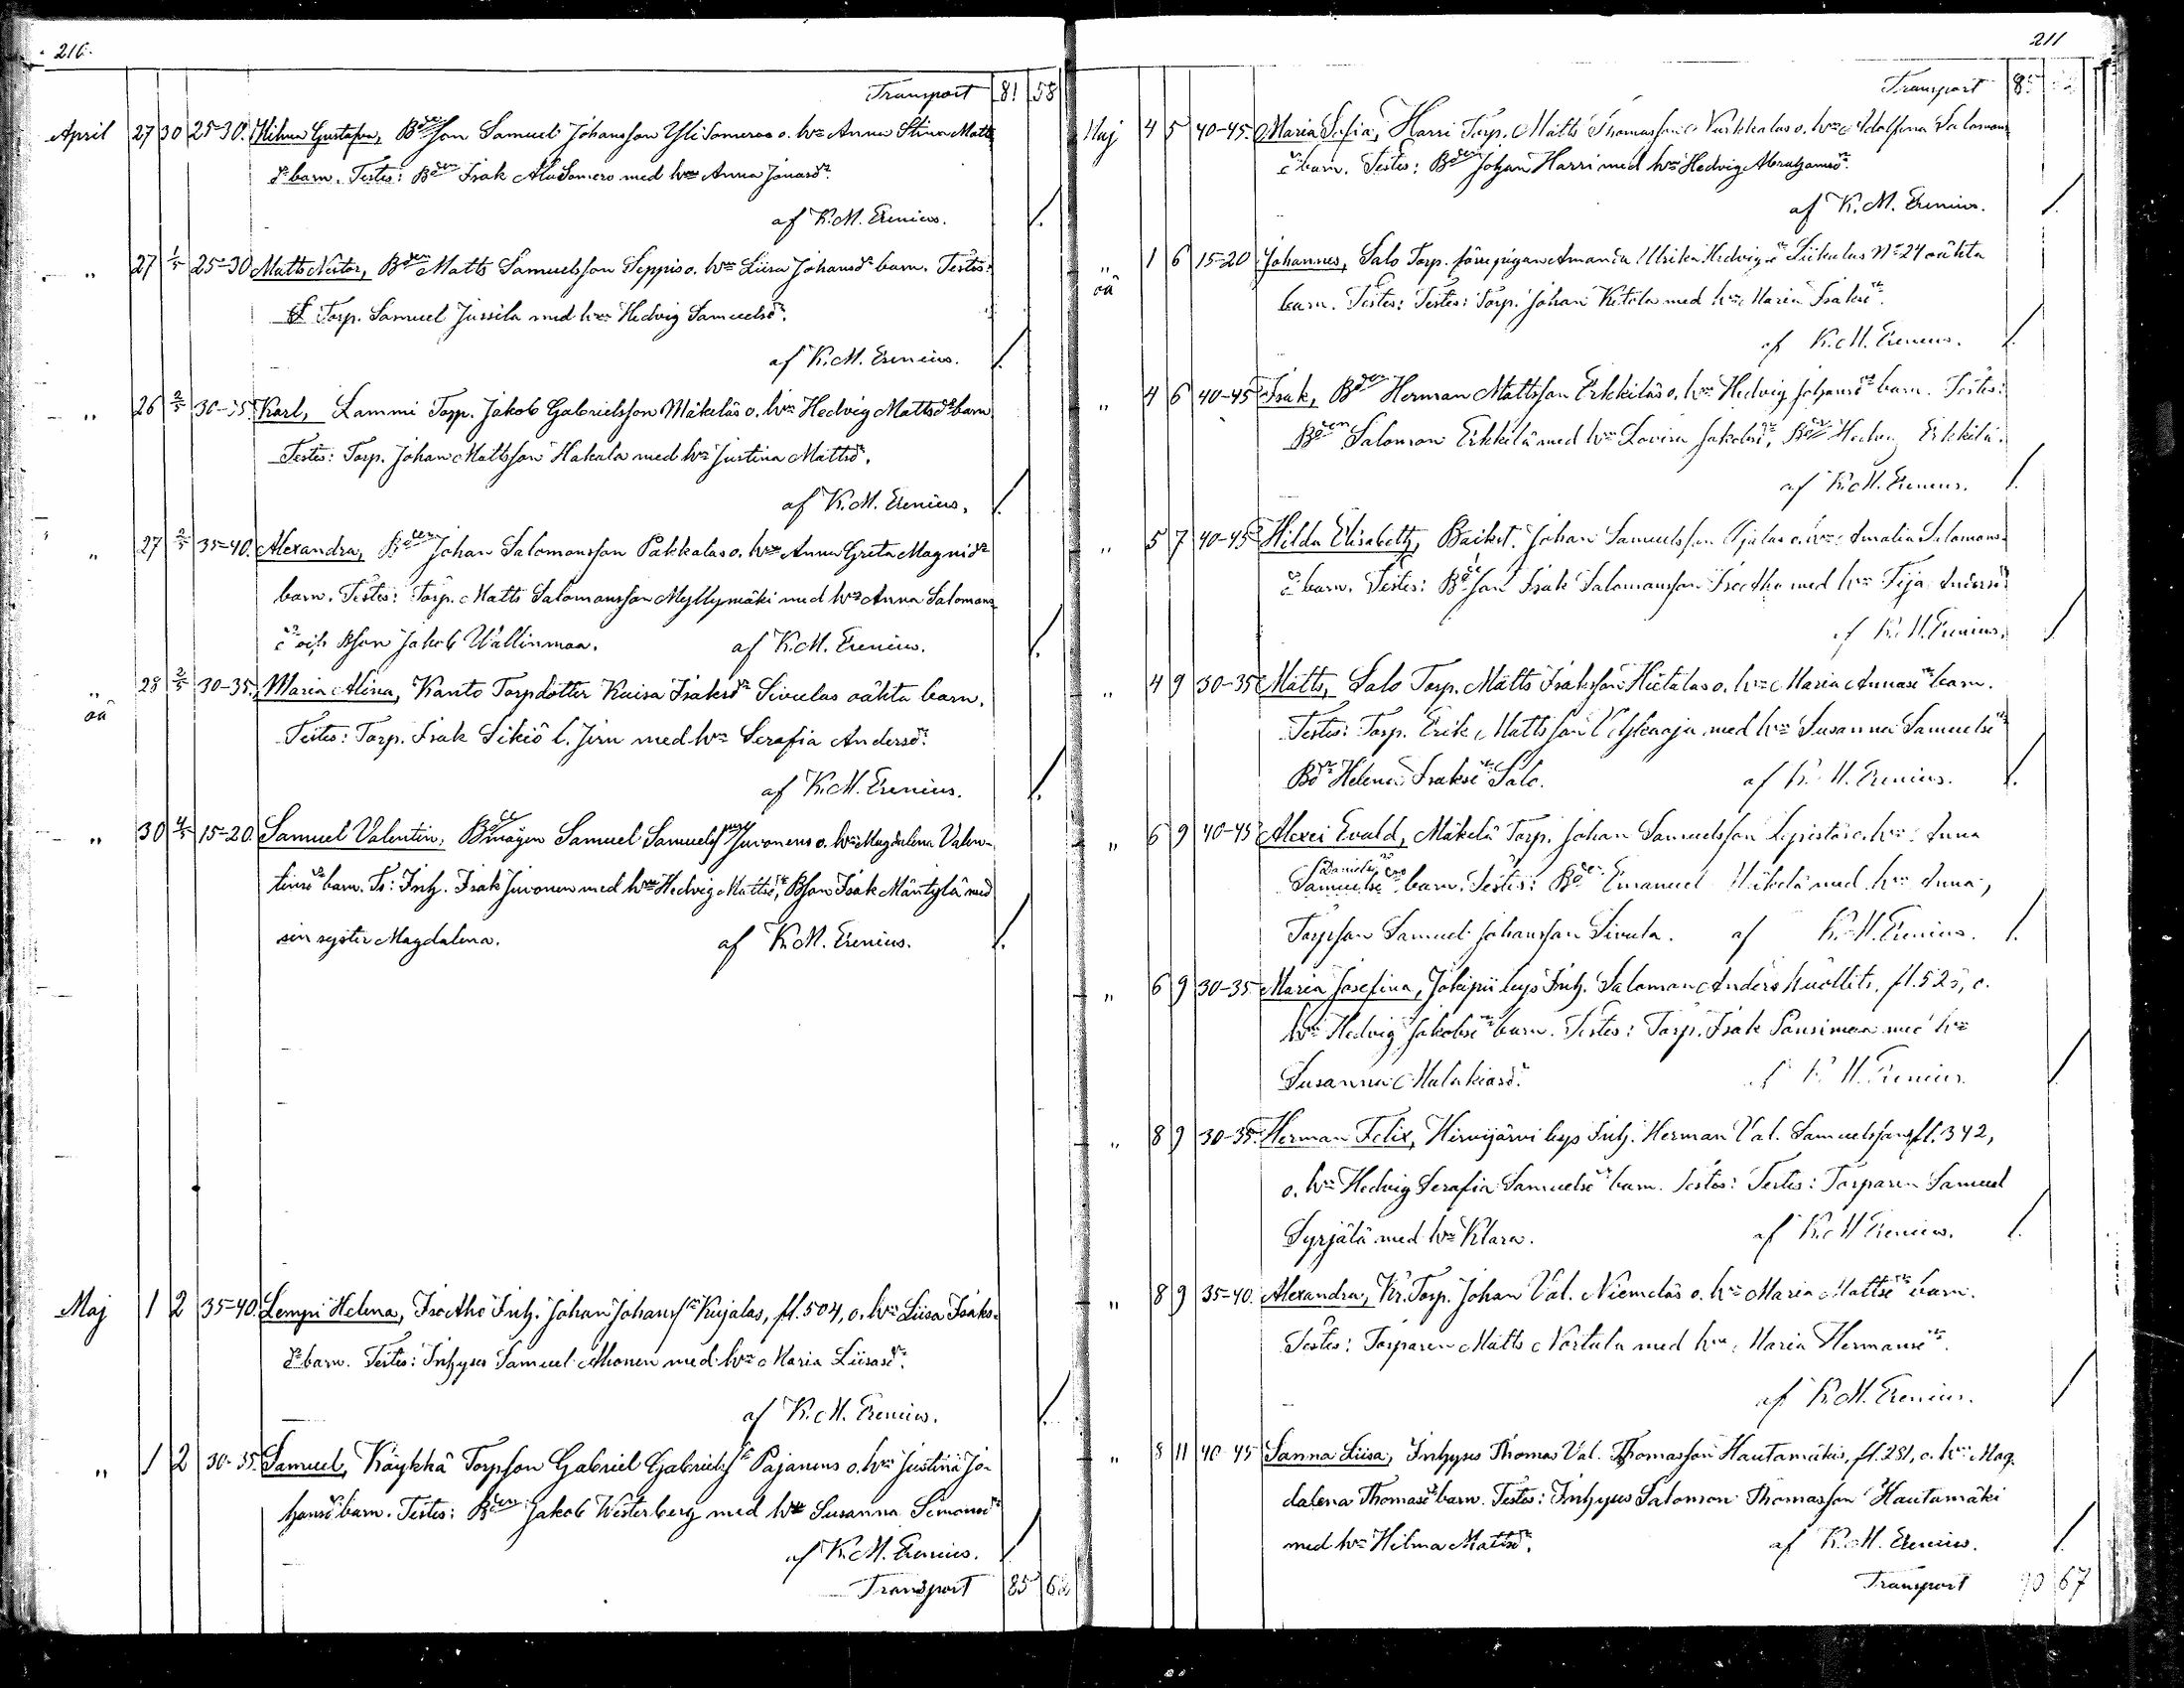 210.
Transport 81 58
April 27 30 25-30. Hilma Gustafva, Bdeson Samuel Johansson Yli Someros o. hns Anna Stina Matts
dr barn. Testes: Bden Isak Ala Somero med hru Anna Jonasdr.
af K. M. Erenius.
„ 27 1/5 25-30 Matts Nestor, Bden Matts Samuelsson Seppis o. hns Liisa Johansdr barn. Testes:
Torp. Samuel Jussila med hru Hedvig Samuelsdr.
af K. M. Erenius.
„ 26 2/5 30-35 Karl, Lammi Torp. Jakob Gabrielsson Mäkeläs o. hns Hedvig Mattsdr barn
Testes: Torp. Johan Mattsson Hakala med hru Justina Mattsdr.
af K. M. Erenius.
„ 27 2/5 35-40. Alexandra, Bden Johan Salomonsson Pakkalas o. hns Anna Greta Magnidr
barn. Testes: Torp. Matts Salomonsson Myllymäki med hru Anna Salomons
dr och Bson Jakob Wallinmaa. af K. M. Erenius.
„ 28 2/5 30-35. Maria Alina, Kanto Torpdotter Kaisa Isaksdr Sivulas oäkta barn.
oä
Testes: Torp. Isak Sikiö l. Jirn med hru Serafia Andersdr.
af K. M. Erenius.
„ 30 4/5 15-20. Samuel Valentin, Bdemågen Samuel Samuelsson Juvonens o. hns Magdalena Valen-
tinsdr barn. Ts: Inh. Isak Juvonen med hru Hedvig Mattsdr, Bson Isak Mäntylä med
sin syster Magdalena. af K. M. Erenius.
Maj 1 2 35-40. Lempi Helena, Isotho Inh. Johan Johanss. Kujalas, fl. 504, o. hns Liisa Isaks-
dr barn. Testes: Inhyses Samuel Ahonen med hru Maria Liisasdr.
af K. M. Erenius.
„ 1 2 30-35. Samuel, Käykkä Torpson Gabriel Gabrielss. Pajanens o. hns Justina Jo-
hansdr barn. Testes: Bden Jakob Westerberg med hru Susanna Simonsdr
af K. M. Erenius.
Transport 85
211
Transport
Maj 4 5 40-45. Maria Sofia, Harri Torp. Matts Thomasson o. hns Adolfina Salomons
dr barn. Testes: Bden Johan Harri med hru Hedvig Abrahamsdr.
af K. M. Erenius.
„ 1 6 15-20 Johannes, Salo Torp. förre pigan Amanda Ulrika Hedvigsdr No 24 oäkta
oä
barn. Testes: Testes: Torp. Johan Ketola med hru Maria Isaksdr.
af K. M. Erenius.
„ 4 6 40-45 Isak, Bden Herman Mattsson Erkkiläs o. hns Hedvig Johansdr barn. Testes:
Bden Salomon Erkkilä med hru Lovisa Jakobsdr, Erkkilä.
af K. M. Erenius.
„ 5 7 40-45 Hilda Elisabeth, Backst. Johan Samuelsson o. hns Amalia Salomons-
dr barn. Testes: Bdeson Isak Salomonsson Isotho med hru Fija Andersdr
af K. M. Erenius.
„ 4 9 30-35 Matts, Salo Torp. Matts Isaksson Hietalas o. hns Maria Annasdr barn.
Testes: Torp. Erik Mattsson med hru Susanna Samuelsdr
Helena Isaksdr Salo. af K. M. Erenius.
„ 6 9 40-45 Alexei Evald, Mäkelä Torp. Johan Samuelsson o. hns Anna
Danielsdr
Samuelsdr barn. Testes: Bden Emanuel Mäkelä med hru Anna,
Torpson Samuel Johansson Sivula. af K. M. Erenius.
„ 6 9 30-35 Maria Josefina, Jokipii bys Inh. Saloman Anders fl. 525, o.
hns Hedvig Jakobsdr barn. Testes: Torp. Isak Pansimaa med hru
Susanna Malakiasdr. af K. M. Erenius
„ 8 9 30-35. Herman Felix, Hirvijärvi bys Inh. Herman Val. Samuelssons fl. 342,
o. hns Hedvig Serafia Samuelsdr barn. Testes: Testes: Torparen Samuel
Syrjälä med hru Klara. af K. M. Erenius.
„ 8 9 35-40. Alexandra, Kr. Torp. Johan Val. Niemeläs o. hns Maria Mattsdr barn.
Testes: Torparen Matts Nortula med hru Maria Hermansdr.
af K. M. Erenius.
„ 8 11 40-45 Sanna Liisa, Inhyses Thomas Val. Thomasson Hautamäkis, fl. 281, o. hns Mag-
dalena Thomasdr barn. Testes: Inhyses Salomon Thomasson Hautamäki
med hru Hilma Mattsdr. af K. M. Erenius.
Transport 90 67